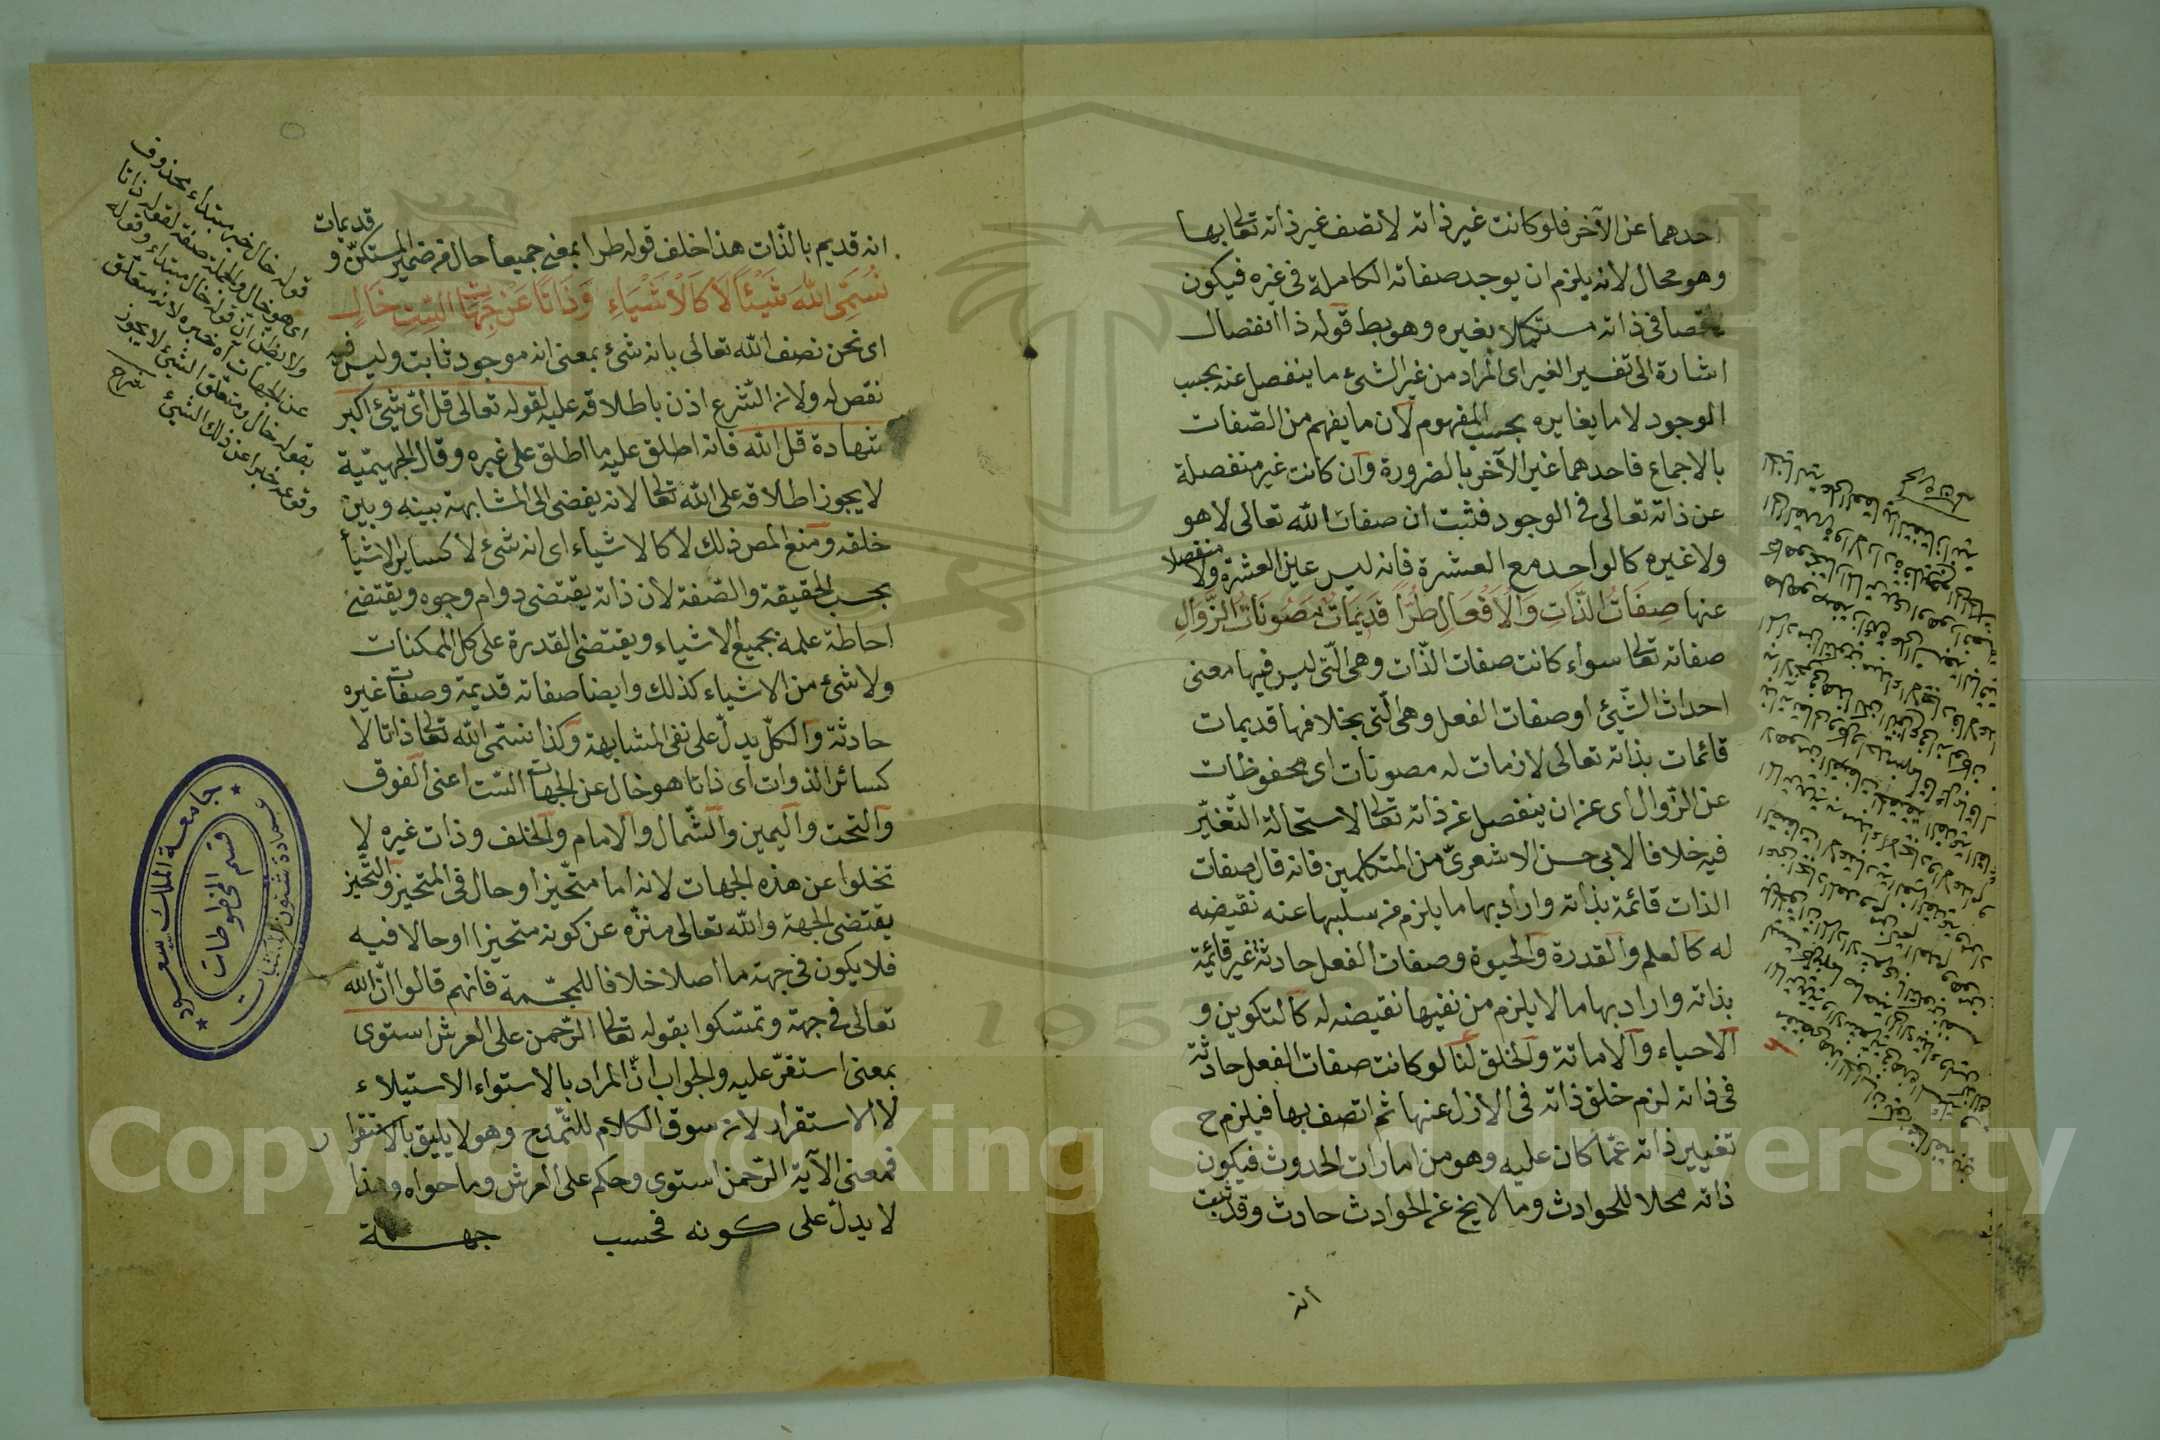 احدهما عن الآخر فلو كانت غير ذاته لاتصف غير ذاته تعالى بها
وهو محال لانه يلزم ان يوجد صفاته الكاملة في غيره فيكون
ناقصا في ذاته مستكملا بغيره وهو بط قوله ذا انفصال
اشارة الى تفسير الغير اى المراد من غير الشئ ما ينفصل عنه بحسب
الوجود لا ما يغايره بحسب المفهوم لان ما يفهم من الصفات
بالاجماع فاحدهما غير الآخر بالضرورة وان كانت غير منفصلة
عن ذاته تعالى في الوجود فثبت ان صفات الله تعالى لا هو
ولا غيره كالواحد مع العشرة فانه ليس عين العشرة ولا منفصلا
عنها صِفَاتُ الذَّاتِ وَالْاَفْعَالِ طُرًّا قَدِيمَاتٌ مَصُونَاتُ الزَّوَالِ
صفاته تعالى سواء كانت صفات الذات وهى الّتى ليس فيها معنى
احداث الشّيئ او صفات الفعل وهى الّتى بخلافها قديمات
قائمات بذاته تعالى لازمات له مصونات اى محفوظات
عن الزّوال اى عن ان ينفصل عن ذاته تعالى لاستحالة التّغيّر
فيه خلافا لابى حسن الاشعرىّ من المتكلمين فانه قال صفات
الذات قائمة بذاته واراد بها ما يلزم من سلبها عنه نقيضه
له كالعلم والقدرة والحيوة وصفات الفعل حادثة غير قائمة
بذاته واراد بها ما لا يلزم من نفيها نقيضه له كالتكوين و
الاحياء والاماتة والخلق لنا لو كانت صفات الفعل حادثة
فى ذاته لزم خلق ذاته فى الازل عنها ثم اتصف بها فيلزم ح
تغيير ذاته عمّا كان عليه وهو من امارات الحدوث فيكون
ذاته محلا للحوادث وما لا يخ عن الحوادث حادث وقد ثبت
انه
انه قديم بالذّات هذا خلف قوله طرا بمعنى جميعا حال من ضمير المستكنّ و
قديمات
نُسَمِّى اللهَ شَيْئًا لَا كَالْاَشْيَاءِ وَذَاتًا عَنْ جِهَاتِ السِّتِّ خَالِ
اى نحن نصف الله تعالى بانه شئ بمعنى انه موجود ثابت وليس فيه
نقص له ولانه الشرع اذن باطلاقه عليه لقوله تعالى قل اىّ شيئ اكبر
شهادة قل الله فانه اطلق عليه ما اطلق على غيره وقال الجهيميّة
لا يجوز اطلاقه على الله تعالى لانه يفضى الى المشابهة بينه وبين
خلقه ومنع المص ذلك لا كالاشياء اى انه شئ لا كسائر الاشيأ
بحسب الحقيقة والصّفة لان ذاته يقتضى دوام وجوه ويقتضى
احاطة علمه بجميع الاشياء ويقتضى القدرة على كل الممكنات
ولا شئ من الاشياء كذلك وايضا صفاته قديمة وصفات غيره
حادثة والكلّ يدلّ على نفى المشابهة وكذا نسمّى الله تعالى ذاتا لا
كسائر الذوات اى ذاتا هو خال عن الجهات السّت اعنى الفوق
والتحت واليمين والشّمال والامام والخلف وذات غيره لا
تخلوا عن هذه الجهات لانه اما متحّيزا او حال فى المتحيز والتّحيز
يقتضى الجهة والله تعالى منزّه عن كونه متحيزا او حالا فيه
فلا يكون فى جهة ما اصلا خلافا للمجسّمة فانهم قالوا انّ الله
تعالى فى جهة وتمسّكوا بقوله تعالى الرّحمن على العرش استوى
بمعنى استقرّ عليه والجواب انّ المراد بالاستواء الاستيلاء
لا الاستقرار لانه سوق الكلام للتّمدّح وهو لا يليق بالاستقرار
فمعنى الآية الرّحمن استوى وحكم على العرش وما حواه وهذا
لا يدلّ على كونه فحسب جهة
قوله خال خبر مبتداء محذوف
اى هو خال والجملة صفة لقوله ذاتا
ولا يظنّ ان قوله خال مبتداء وقوله
عن الجهات آه خبره لانه متعلّق
بقوله خال ومتعلّق الشّيئ لا يجوز
وقوعه خبرا عن ذلك الشّيئ شرح
جامعة الملك سعود
قسم المخطوطات
عمادة شئون المكتبات
Copyright © King Saud University
1957